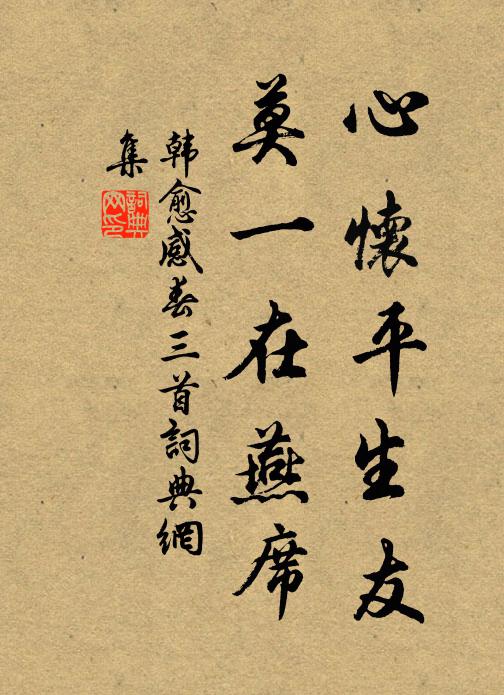 心懷平生友
莫一在燕席
韓愈感春三首詞典網
集
詞典
网印